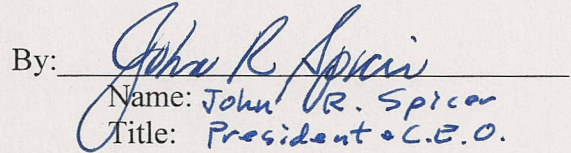 By: John R Spicer
Name: John R. Spicer
Title: President & C.E.O.